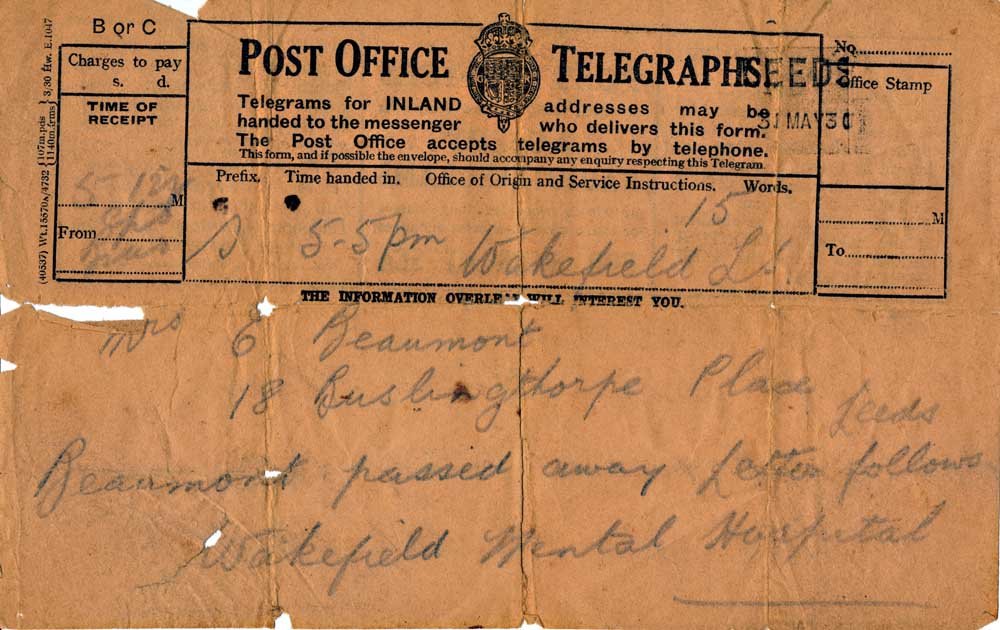 B or C
Charges to pay
s. d.
TIME OF
RECEIPT
M
From
POST OFFICE TELEGRAPHS
Telegrams for INLAND addresses may be
handed to the messenger who delivers this form.
The Post Office accepts telegrams by telephone.
This form, and if possible the envelope, should accompany any enquiry respecting this Telegram
Prefix. Time handed in. Office of Origin and Service Instructions. Words.
15
S 5-5pm Wakefield
No.
Office Stamp
LEEDS
31 MAY 30
M
To
(40537) Wt.15570A/4732 107m.pds 1140m.frms 3/30 Hw. E.1047
THE INFORMATION OVERLEAF WILL INTEREST YOU.
Mrs E Beaumont
18 Buslingthorpe Place
Leeds
Beaumont passed away Letter follows
Wakefield Mental Hospital